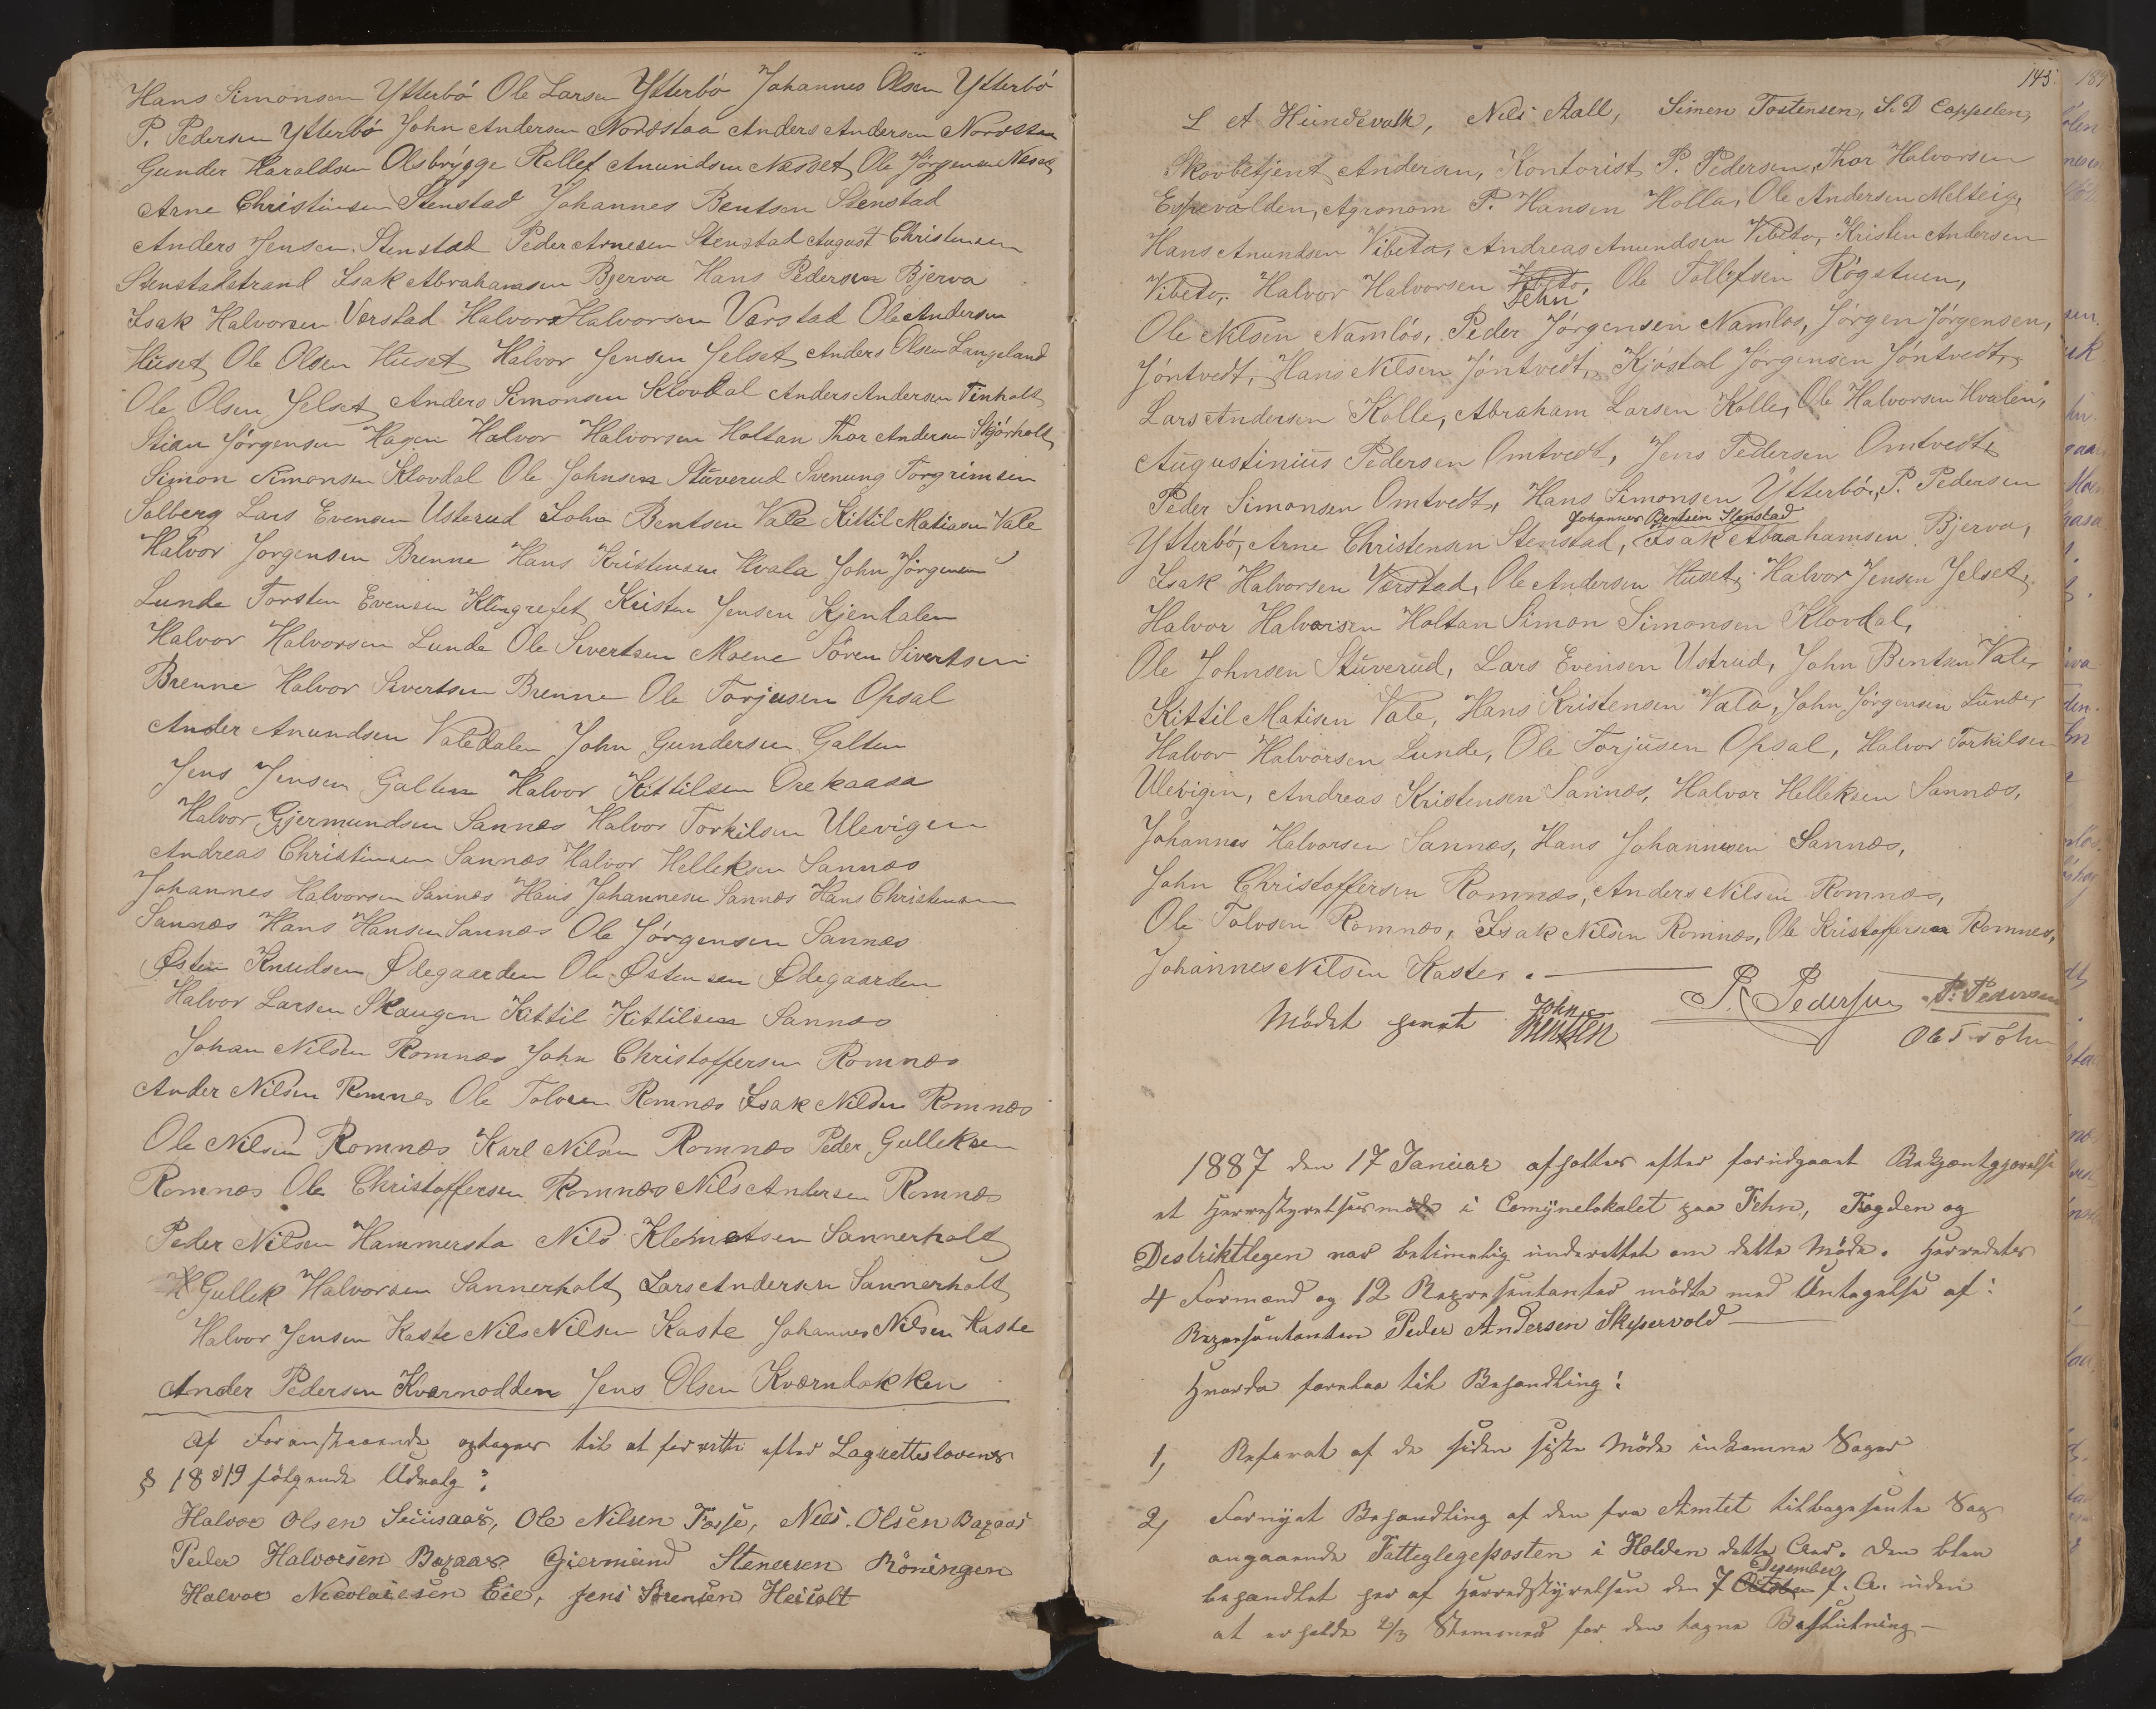 Hans Simonsen Ytterbö Ole Larsen Ytterbö Johannes Olsen Ytterbö
P. Pedersen Ytterbö John Andersen Nordstaa Anders Andersen Nordstaa
Gunder Haraldsen Olsbrygge Rollef Anundsen Næsset Ole Jörgensen Neset
Arne Christinsen Stenstad Johannes Bentsen Stenstad
Anders Jensen Stenstad Peder Arnesen Stenstad August Christensen
Stenstadstrand Isak Abrahamsen Bjerva Hans Pedersen Bjerva
Isak Halvorsen Verstad Halvor Halvorsen Værstad Ole Andersen
Huset Ole Olsen Huset Halvor Jensen Jelset Anders Olsen Langeland
Ole Olsen Jelset Anders Simonsen Klovdal Anders Andersen Tinholt
Stian Jörgensen Hagen Halvor Halvorsen Holtan Thor Andersen Skjörholt
Simon Simonsen Klovdal Ole Johnsen Stuverud Svenung Torgrimsen
Solberg Lars Evensen Usterud John Bentsen Vale Kittil Matisen Vale
Halvor Jorgensen Brenne Hans Kristensen Hvala John Jörgensen
Lunde Torsten Evensen Klingrefet Kristen Jensen Kjendalen
Halvor Halvorsen Lunde Ole Sivertsen Moene Sören Sivertsen
Brenne Halvor Sivertsen Brenne Ole Torjusen Opsal
Ander Anundsen Valedalen John Gundersen Galten
Jens Jensen Galten Halvor Kittilsen Orekaasa
Halvor Gjermundsen Sannes Halvor Torkilsen Ulevigen
Andreas Christinsen Sannæs Halvor Helleksen Sannæs
Johannes Halvorsen Sannæs Hans Johannesen Sannæs Hans Christensen
Sannæs Hans Hansen Sannæs Ole Jörgensen Sannæs
Østen Knudsen Ødegaarden Ole Østensen Ødegaarden
Halvor Larsen Skaugen Kittil Kittilsen Sannæs
Johan Nilsen Romnæs John Christoffersen Romnæs
Ander Nilsen Romnes Ole Tolvsen Romnæs Isak Nilsen Romnæs
Ole Nilsen Romnæs Karl Nilsen Romnæs Peder Gulleksen
Romnæs Ole Christoffersen Romnæs Nils Andersen Romnæs
Peder Nilsen Hammersta Nils Klemetsen Sannerholt
Gullek Halvorsen Sannerholt Lars Andersen Sannerholt
Halvor Jensen Kaste Nils Nilsen Kaste Johannes Nilsen Kaste
Ander Pedersen Kvernodden Jens Olsen Kværndokken
Af Foranstaaende optages til at forrette efter Lagrettelovens
§ 18 & 19 fölgende Udvalg:
Halvor Olsen Ole Nilsen Fosse, Nils Olsen
Peder Halvorsen Giermund Stenersen Röningen
Halvor Nicolaisen Eie, Jens Sörensen Heisolt
145.
L A Hendevalk, Nils Aall, Simen Tostensen, S. D Cappelen,
Skovbetjent Andersen, Kontorist P. Pedersen, Thor Halvorsen
Espevalden, Agronom P. Hansen Holla, Ole Andersen Melteig,
Hans Anundsen Vibeto, Andreas Anundsen Vibeto, Kristen Andersen
Vibeto, Halvor Halvorsen Vibeto, Ole Tollefsen Rögstuen,
Fehn
Ole Nilsen Namlös, Peder Jörgensen Namlos, Jörgen Jörgensen,
Jöntvedt, Hans Nilsen Jöntvedt, Kjöstol Jörgensen Jöntvedt,
Lars Andersen Kolle, Abraham Larsen Kolle, Ole Halvorsen Hvalen,
Augustinius Pedersen Omtvedt, Jens Pedersen Omtvedt,
Peder Simonsen Omtvedt, Hans Simonsen Ytterbö, P. Pedersen
Johannes Bentsen Stenstad
Ytterbö, Arne Christensen Stenstad, Isak Abrahamsen Bjerva,
Isak Halvorsen Værstad, Ole Andersen Huset, Halvor Jensen Jelset,
Halvor Halvorsen Holtan Simon Simonsen Klovdal,
Ole Johnsen Stuverud, Lars Evensen Ustrud, John Bentsen Vale,
Kittil Matisen Vale, Hans Kristensen Vala, John Jörgensen Lunde,
Halvor Halvorsen Lunde, Ole Torjusen Opsal, Halvor Torkilsen
Ulevigin, Andreas Kristensen Sannæs, Halvor Helleksen Sannæs,
Johannes Halvorsen Sannæs, Hans Johannesen Sannæs,
John Christoffersen Romnæs, Anders Nilsen Romnæs,
Ole Tolvsen Romnæs, Isak Nilsen Romnæs, Ole Kristoffersen Romnes,
Johannes Nilsen Kaste.
Mödet hævet John Bentsen P. Pedersen P. Pedersen
Ole T
1887 den 17 Januar afholtes efter forudgaaet Bekjentgjörelse
et Herredstyrelsesmöde i Comunelokalet paa Fehn, Fogden og
Destriktlegen var betimelig underettet om dette Möde. Herredets
4 Formænd og 12 Representanter mödte med Untagelse af:
Representanten Peder Andersen Skjervold
Hvorda foretaes til Behandling:
1, Referat af de siden siste Möde indkomne Sager
2, Fornyet Behandling af den fra Amtet tilbagesendte Sag
angaaende Fatteglegeposten i Holden dette Aar. Den blev
Desember
behandlet her af Herredstyrelsen den 7 October f. A. uden
at erholde 2/3 Stemmer for den tagne Beslutning